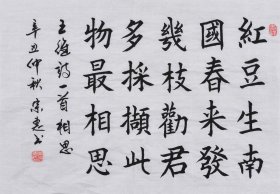 紅豆生南
國春来發
幾枝勸君
多採擷此
物最相思
王維詩一首相思
辛丑仲秋宋惠书